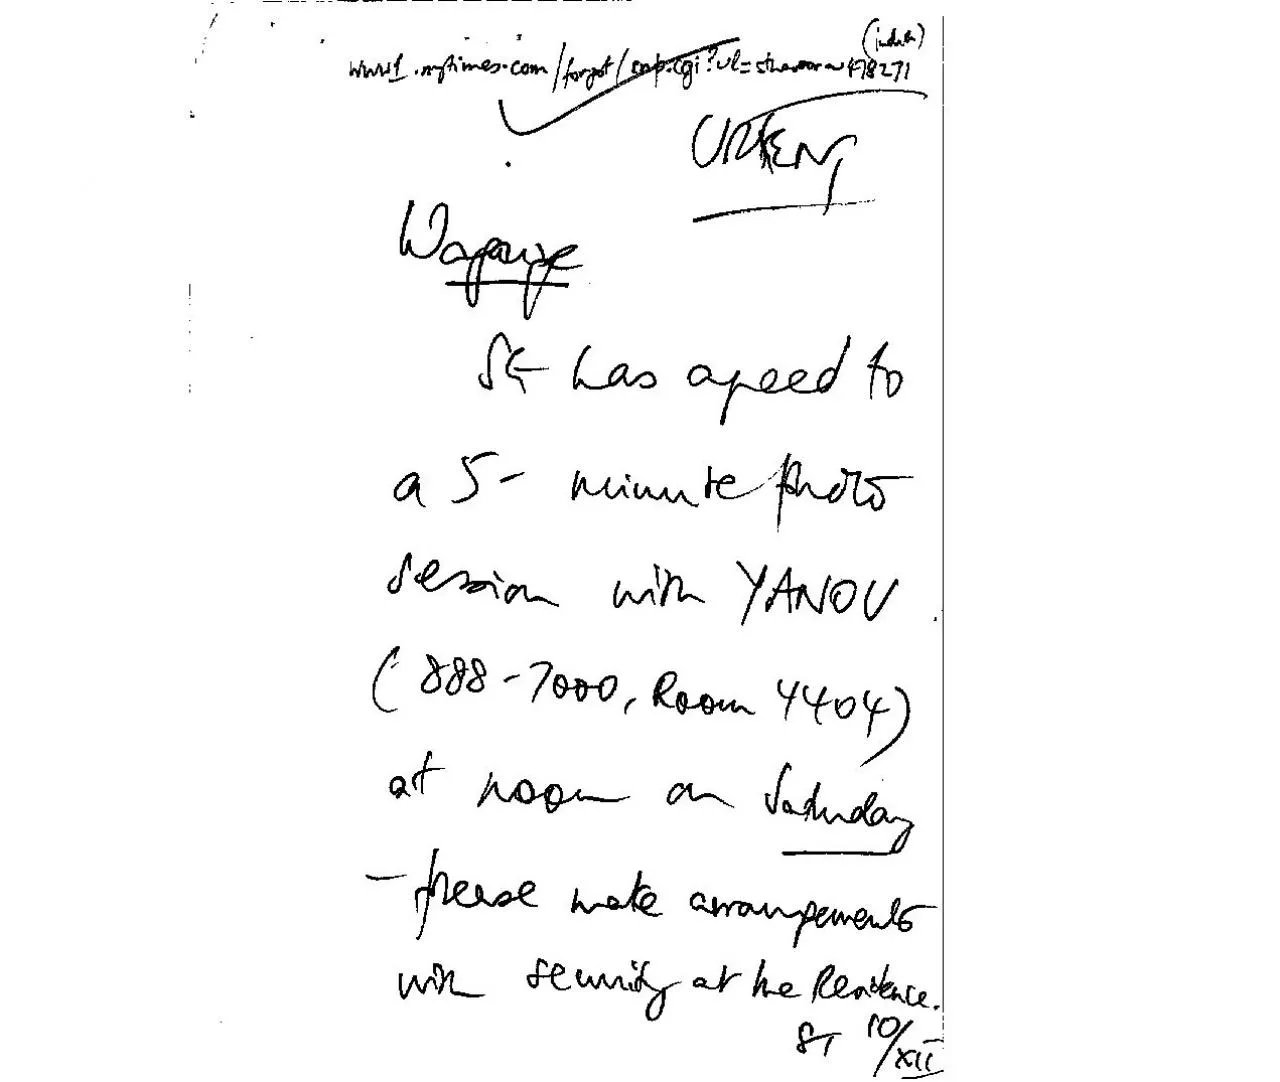 (india)
www1.nytimes.com/forgot/
URGENT
SG has agreed to
a 5-minute photo
session with YANOV
(888-7000, Room 4404)
at noon on Saturday
- please make arrangements
with security at the Residence.
ST 10/XII